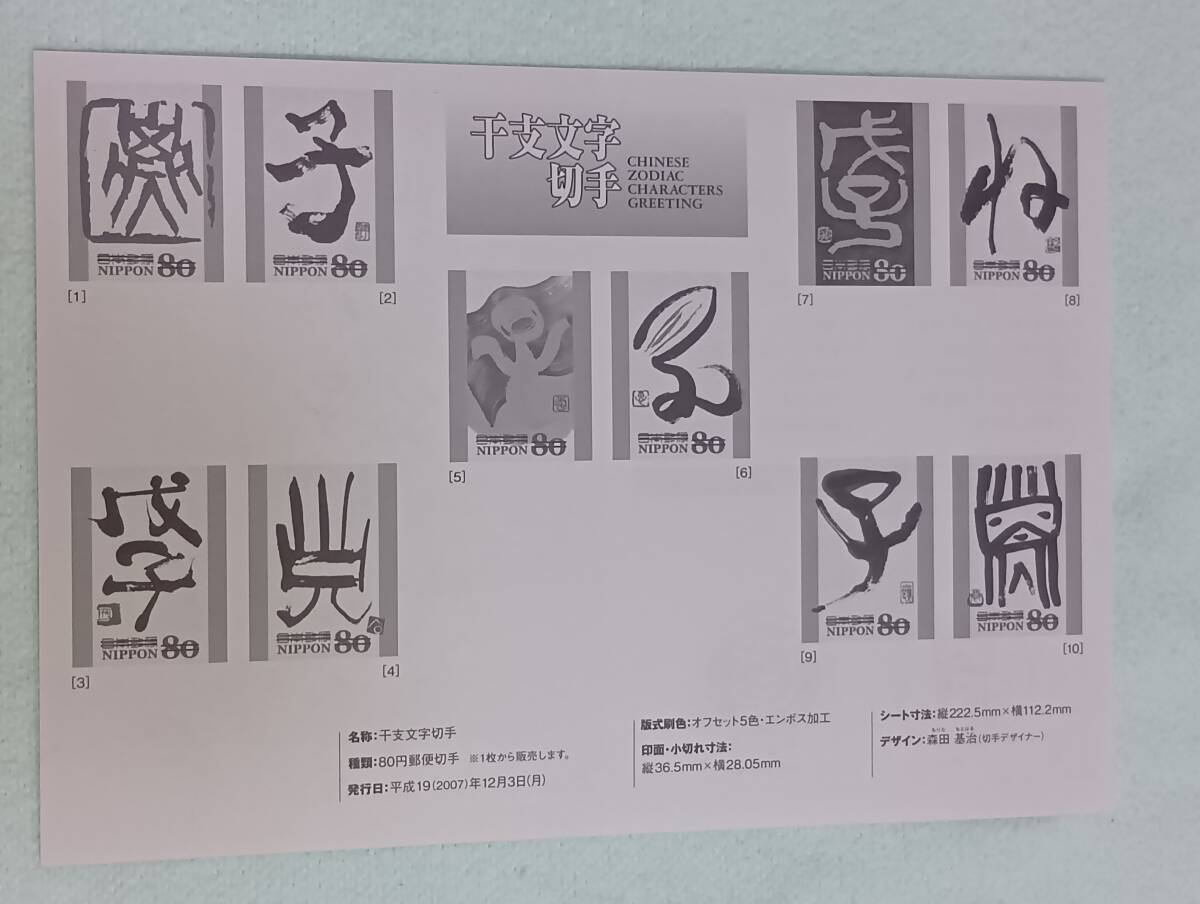 干支文字
切手
CHINESE
ZODIAC
CHARACTERS
GREETING
子
日本郵便
NIPPON 80
[1]
日本郵便
NIPPON 80
[2]
日本郵便
NIPPON 80
[3]
日本郵便
NIPPON 80
[4]
日本郵便
NIPPON 80
[5]
日本郵便
NIPPON 80
[6]
日本郵便
NIPPON 80
[7]
ね
日本郵便
NIPPON 80
[8]
子
日本郵便
NIPPON 80
[9]
日本郵便
NIPPON 80
[10]
名称:干支文字切手
種類:80円郵便切手 ※1枚から販売します。
発行日:平成19(2007)年12月3日(月)
版式刷色:オフセット5色・エンボス加工
印面・小切れ寸法:
縦36.5mm×横28.05mm
シート寸法:縦222.5mm×横112.2mm
もりた もとはる
デザイン:森田 基治(切手デザイナー)